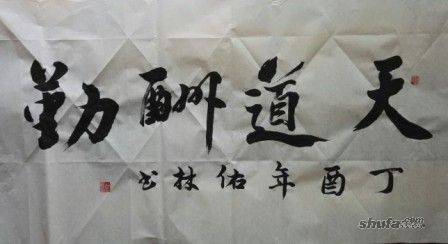 天道酬勤
丁酉年佑林书
shufa.com